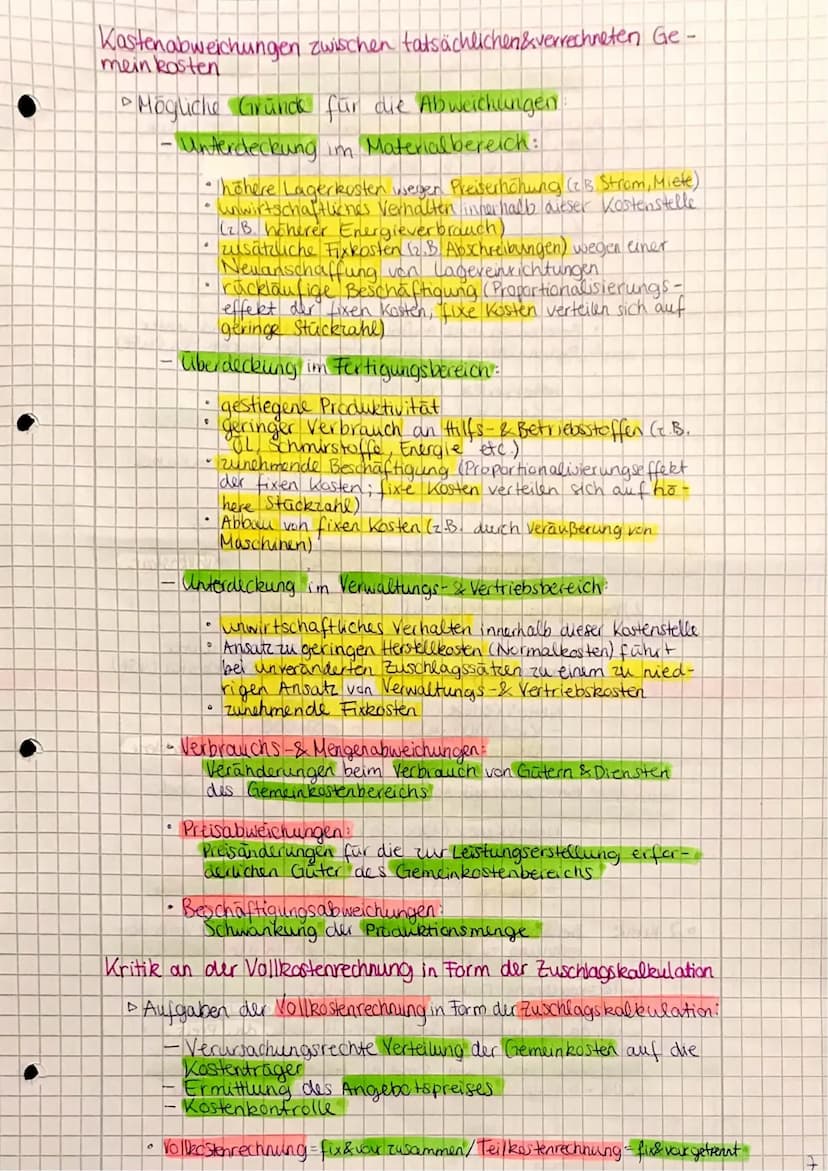 Kostenabweichungen zwischen tatsächlichen&verrechneten Ge-
meinkosten
▹ Mögliche Gründe für die Abweichungen:
- Unterdeckung im Materialbereich:
• höhere Lagerkosten wegen Preiserhöhung (z.B. Strom, Miete)
• unwirtschaftliches Verhalten innerhalb dieser Kostenstelle
(z.B. höherer Energieverbrauch)
• zusätzliche Fixkosten (z.B. Abschreibungen) wegen einer
Neuanschaffung von Lagereinrichtungen
• rückläufige Beschäftigung (Proportionalisierungs-
effekt der fixen Kosten, fixe Kosten verteilen sich auf
geringe Stückzahl)
- Überdeckung im Fertigungsbereich:
• gestiegene Produktivität
• geringer Verbrauch an Hilfs- & Betriebsstoffen (z.B.
Öl, Schmirstoffe, Energie etc.)
• zunehmende Beschäftigung (Proportionalisierungseffekt
der fixen Kosten; fixe Kosten verteilen sich auf hö-
here Stückzahl)
• Abbau von fixen Kosten (z.B. durch Veräußerung von
Maschinen)
- Unterdeckung im Verwaltungs- & Vertriebsbereich:
• unwirtschaftliches Verhalten innerhalb dieser Kostenstelle
• Ansatz zu geringen Herstellkosten (Normalkosten) führt
bei unveränderten Zuschlagssätzen zu einem zu nied-
rigen Ansatz von Verwaltungs- & Vertriebskosten
• zunehmende Fixkosten
• Verbrauchs- & Mengenabweichungen:
Veränderungen beim Verbrauch von Gütern & Diensten
des Gemeinkostenbereichs
• Preisabweichungen:
Preisänderungen für die zur Leistungserstellung erfor-
derlichen Güter des Gemeinkostenbereichs
• Beschäftigungsabweichungen:
Schwankung der Produktionsmenge
Kritik an der Vollkostenrechnung in Form der Zuschlagskalkulation
▹ Aufgaben der Vollkostenrechnung in Form der Zuschlagskalkulation:
- Verursachungsrechte Verteilung der Gemeinkosten auf die
Kostenträger
- Ermittlung des Angebotspreises
- Kostenkontrolle
• Vollkostenrechnung = fix&var zusammen / Teilkostenrechnung = fix&var getrennt
7